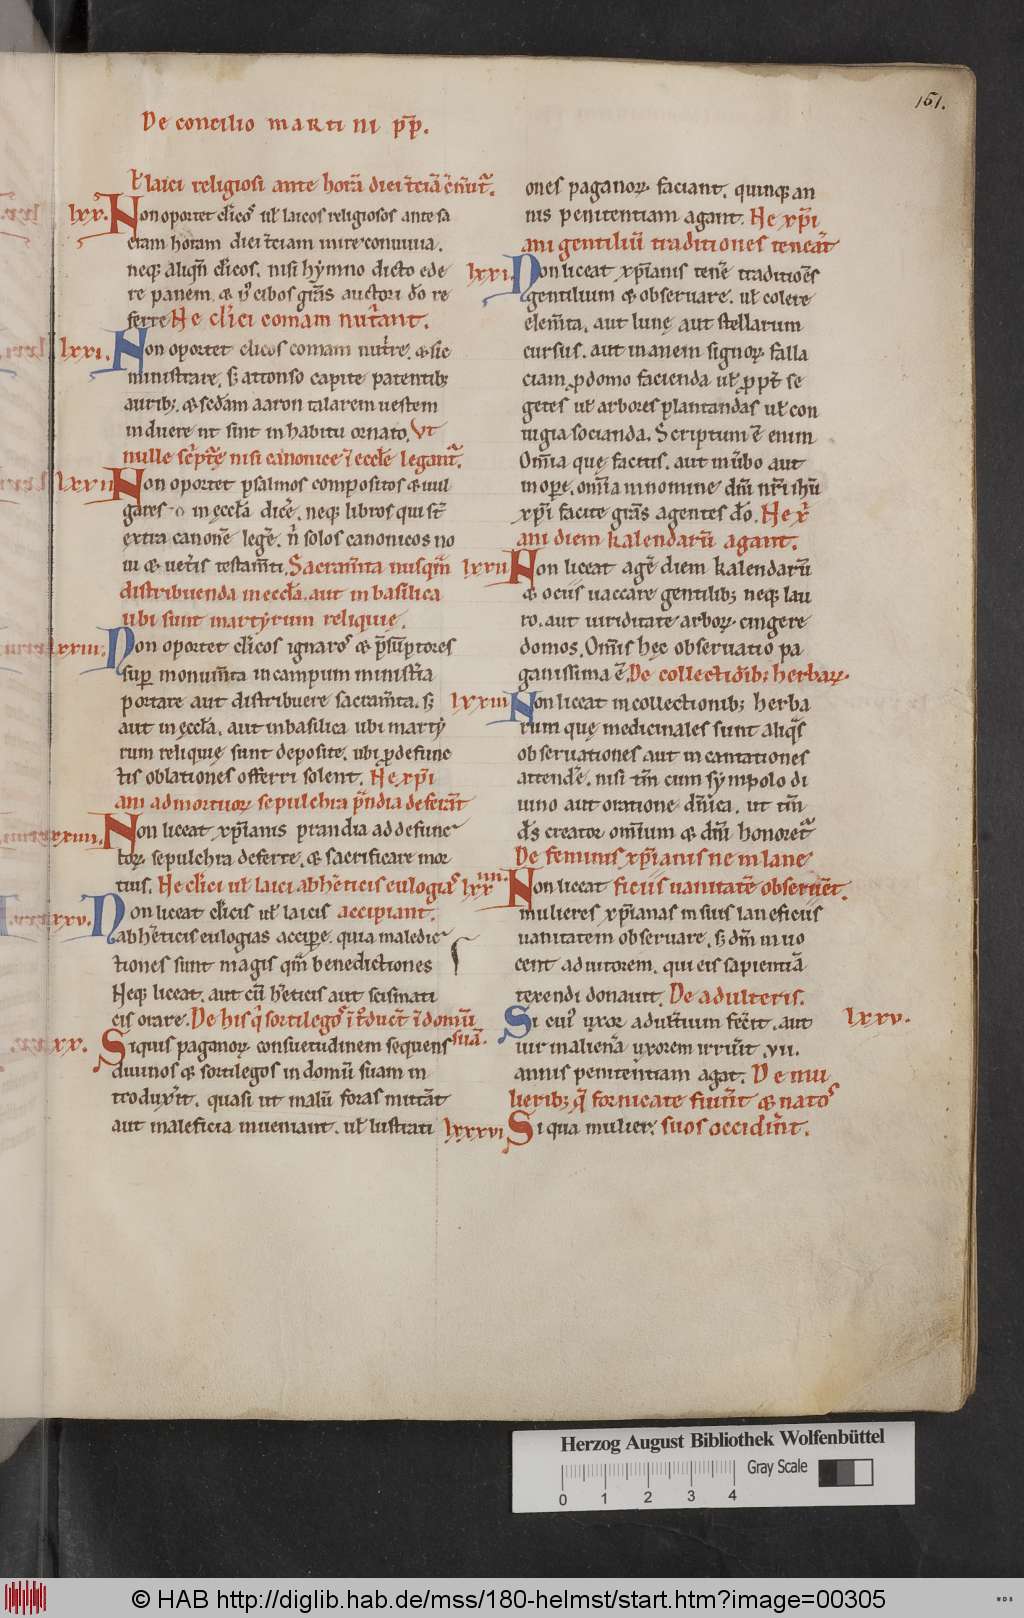 161.
De concilio martini pp̄.
ł laici religiosi ante horā diei t̄ciā c̄īuit̄.
lxv. Non oportet cl̄icoſ uł laicos religiosos ante sa
cram horam diei t̄ciam inire conuiuia.
neq; aliqn̄ cl̄icos. nisi hymno dicto ede
re panem. & p̓ cibos gr̄as auctori do re
ferre Ne cl̄ici comam nut̄iant.
lxvi. Non oportet clicos comam nut̄re. & sic
ministrare. s; attonso capite patentib;
aurib;. & sedam aaron talarem uestem
induere ut sint in habitu ornato. Vt
nulle sc̄ptę nisi canonice ī eccłe legant̄.
lxvii Non oportet psalmos compositos & uul
gares in ęccła dice. neq; libros qui st̄
extra canone lege. n̄ solos canonicos no
ui & uet̄is testam̄ti. Sacram̄ta nusqm̄
distribuenda in eccła. aut in basilica
ubi sunt martyrum reliquię.
lxviii. Non oportet cl̄icos ignaroſ & p̄sūptores
sup monum̄ta in campum minist̄ia
portare aut distribuere sacram̄ta. s;
aut in ęccła. aut in basilica ubi marty
rum reliquię sunt deposite. ubi p defunc
tis oblationes offerri solent. Ne xp̄i
ani ad mortuoꝝ sepulchra p̄ndia deferāt
lxviiii. Non liceat xp̄ianis prandia ad defunc
toꝝ sepulchra deferre. & sacrificare mor
tuis. Ne cl̄ici uł laici ab h̄eticis eulogiaſ
lxx. Non liceat cl̄icis uł laicis accipiant.
ab h̄eticis eulogias accipe. quia maledic
tiones sunt magis qm̄ benedictiones
Neq; liceat. aut cū h̄eticis aut scismati
cis orare. De his q̓ sortilegoſ ī t̄duct̄ ī domū
suā.
Siquis paganoꝝ consuetudinem sequens
diuinos & sortilegos in domū suam in
troduxit̄. quasi ut malū foras mittāt
aut maleficia inueniant. uł lustrati
ones paganoꝝ faciant. quinq; an
nis penitentiam agant. Ne xp̄i
ani gentiliū traditiones teneāt
lxxi Non liceat xp̄ianis tene traditioēs
gentilium & obseruare. uł colere
elem̄ta. aut lunę aut stellarum
cursus. aut inanem signoꝝ falla
ciam. p domo facienda uł ppt̄ se
getes uł arbores plantandas uł con
iugia socianda. Scriptum ē enim
Om̄ia quę facitis. aut in ūbo aut
in ope. om̄ia in nomine dn̄i nr̄i ihū
xp̄i facite gr̄as agentes do. Ne x̄
ani diem kalendarū agant.
lxxii Non liceat age diem kalendarū
& ociis uaccare gentilib; neq; lau
ro. aut uiriditate arboꝝ cingere
domos. Om̄is hęc obseruatio pa
ganissima ē. De collectiōib; herbaꝝ.
lxxiii Non liceat in collectionib; herba
rum quę medicinales sunt aliqs
obseruationes aut incantationes
attende. nisi tm̄ cum sympolo di
uino aut oratione dn̄ica. ut tm̄
d̄s creator om̄ium & dn̄s honoret̄
De feminis xp̄ianis ne in lane
lxxiiii. Non liceat ficiis uanitatē obseruēt.
mulieres xp̄ianas in suis laneficiis
uanitatem obseruare. s; dm̄ inuo
cent adiutorem. qui eis sapientiā
texendi donauit. De adulteris.
Si cuiꝰ uxor adult̄ium fec̄it. aut lxxv.
uir aliena uxorem irruit. vii.
annis penitentiam agat. De mu
lierib; q̄ fornicate fiunt & natoſ
lxxxvi Si qua mulier. suos occidunt.
Herzog August Bibliothek Wolfenbüttel
Gray Scale
0 1 2 3 4
© HAB http://diglib.hab.de/mss/180-helmst/start.htm?image=00305